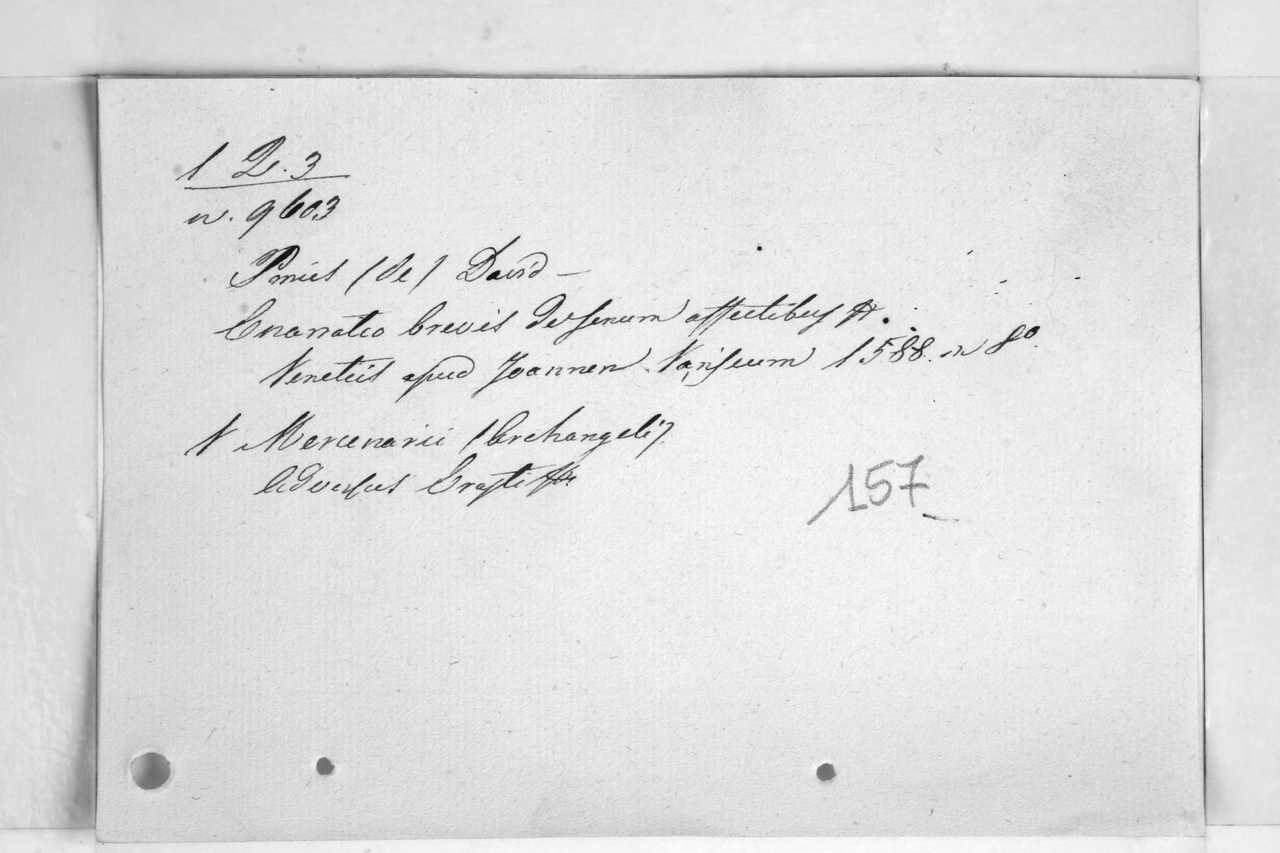 1 Q. 3
n. 9603
Pomis (de) David —
Enarratio brevis de senum affectibus &.
Venetiis apud Joannem Variscum 1588. in 8º.
V Mercenarii (Archangeli)
Adversus Erasti &.
157